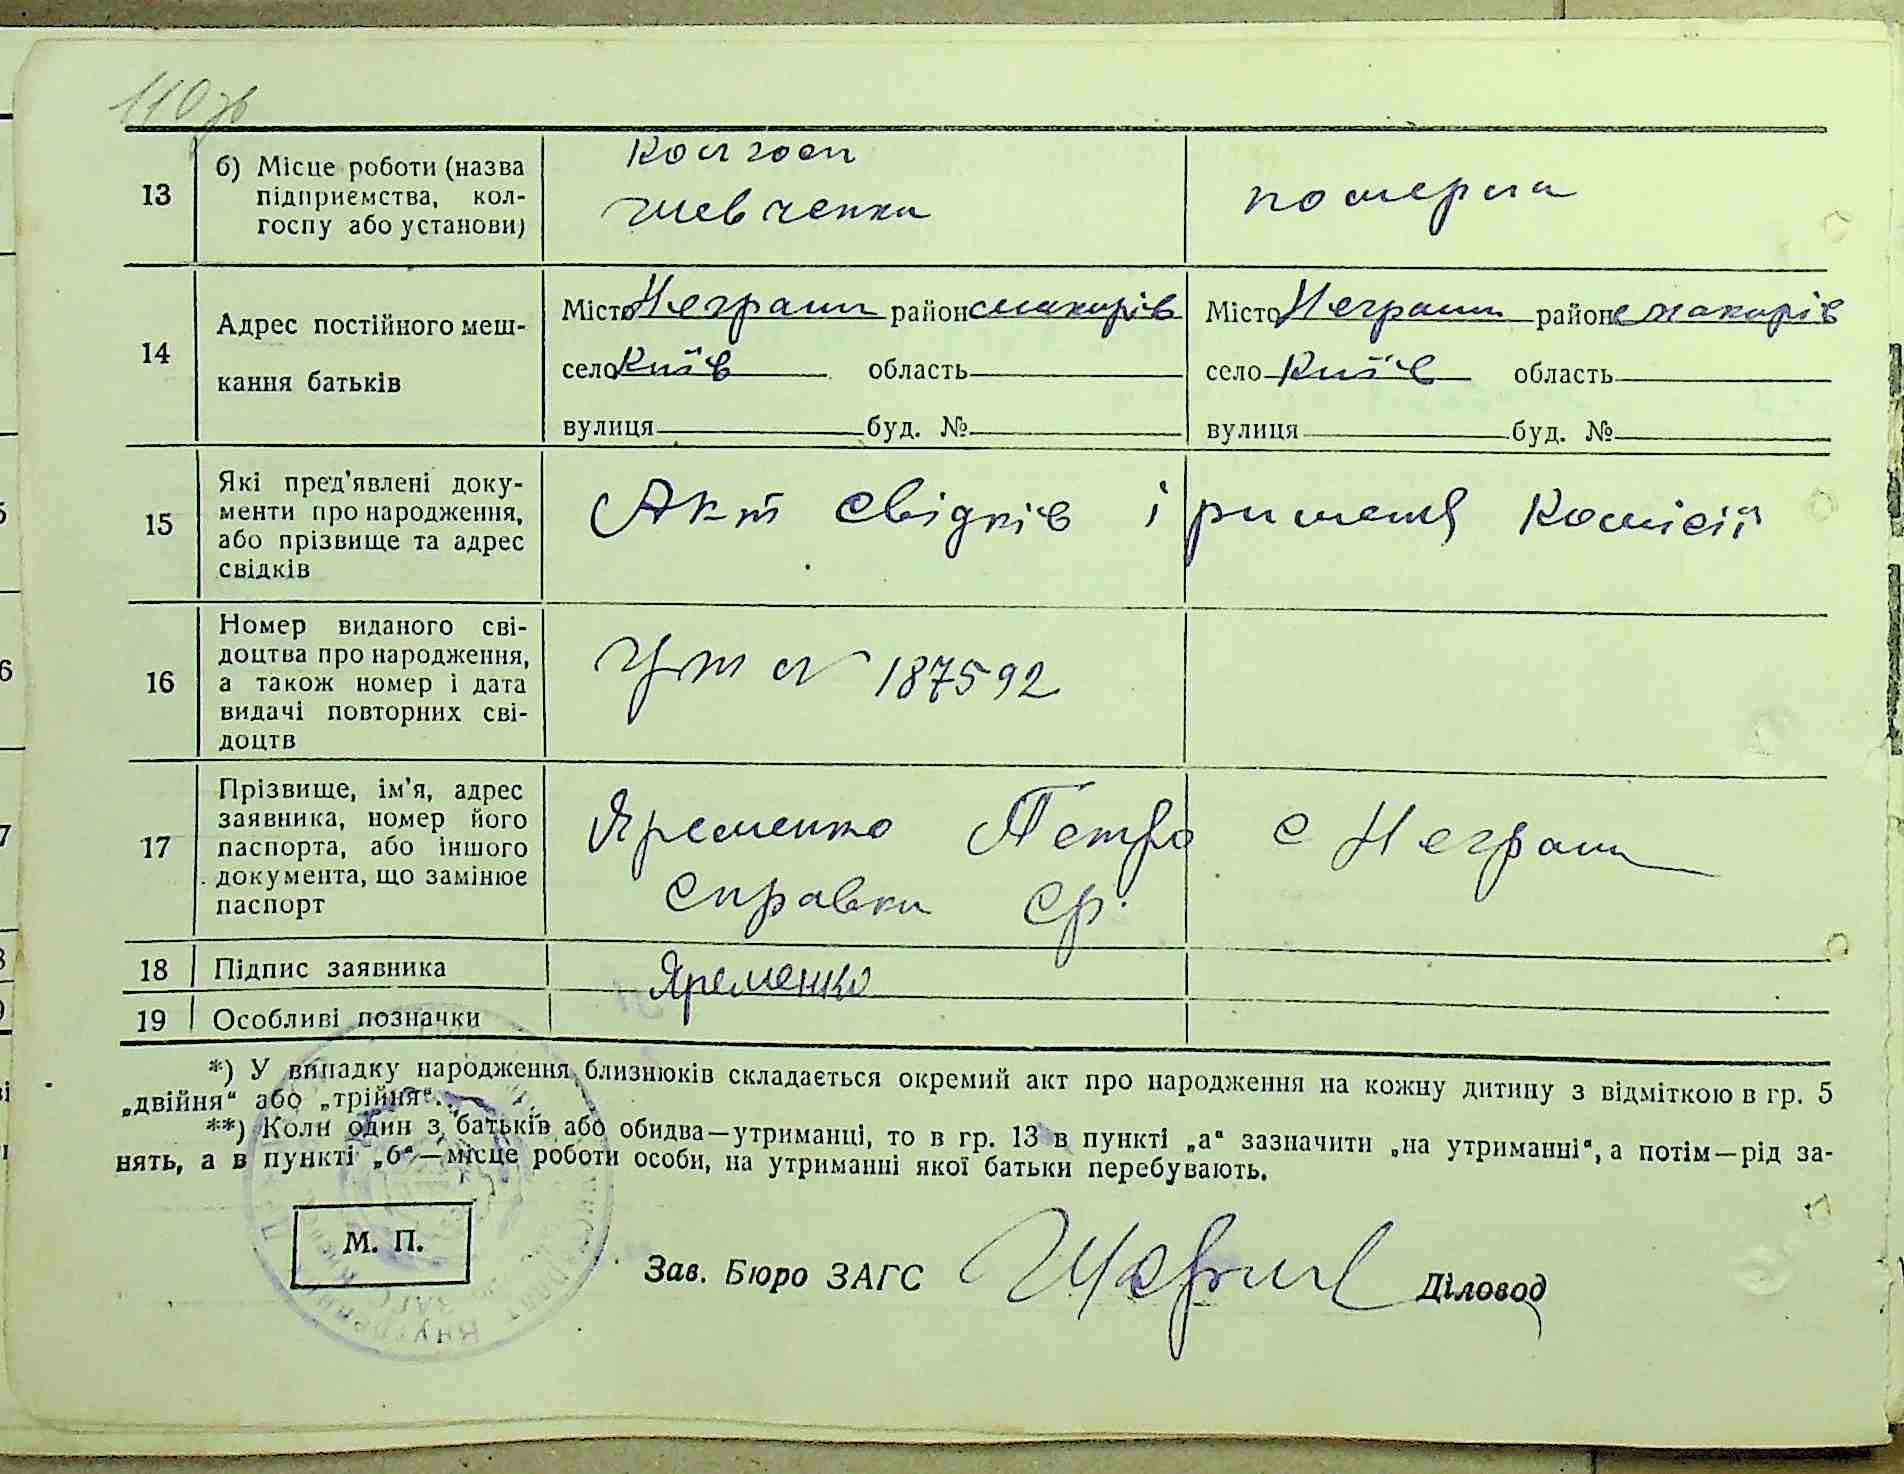 110 зв
13
б) Місце роботи (назва
підприємства, кол-
госпу або установи)
Колгосп
шевченка
померла
14
Адрес постійного меш-
кання батьків
Місто Неграши район макарів
село Київ область
вулиця буд. №
Місто Неграши район макарів
село Київ область
вулиця буд. №
15
Які пред'явлені доку-
менти про народження,
або прізвище та адрес
свідків
Акт свідків і ришеня Комісії
16
Номер виданого сві-
доцтва про народження,
а також номер і дата
видачі повторних сві-
доцтв
N 187592
17
Прізвище, ім'я, адрес
заявника, номер його
паспорта, або іншого
документа, що замінює
паспорт
Яременко Петро с Неграши
Справка ср.
18
Підпис заявника
Яременко
19
Особливі позначки
*) У випадку народження близнюків складається окремий акт про народження на кожну дитину з відміткою в гр. 5
„двійня“ або „трійня“.
**) Коли один з батьків або обидва—утриманці, то в гр. 13 в пункті „а“ зазначити „на утриманні“, а потім—рід за-
нять, а в пункті „б“—місце роботи особи, на утриманні якої батьки перебувають.
М. П.
Зав. Бюро ЗАГС
Діловод